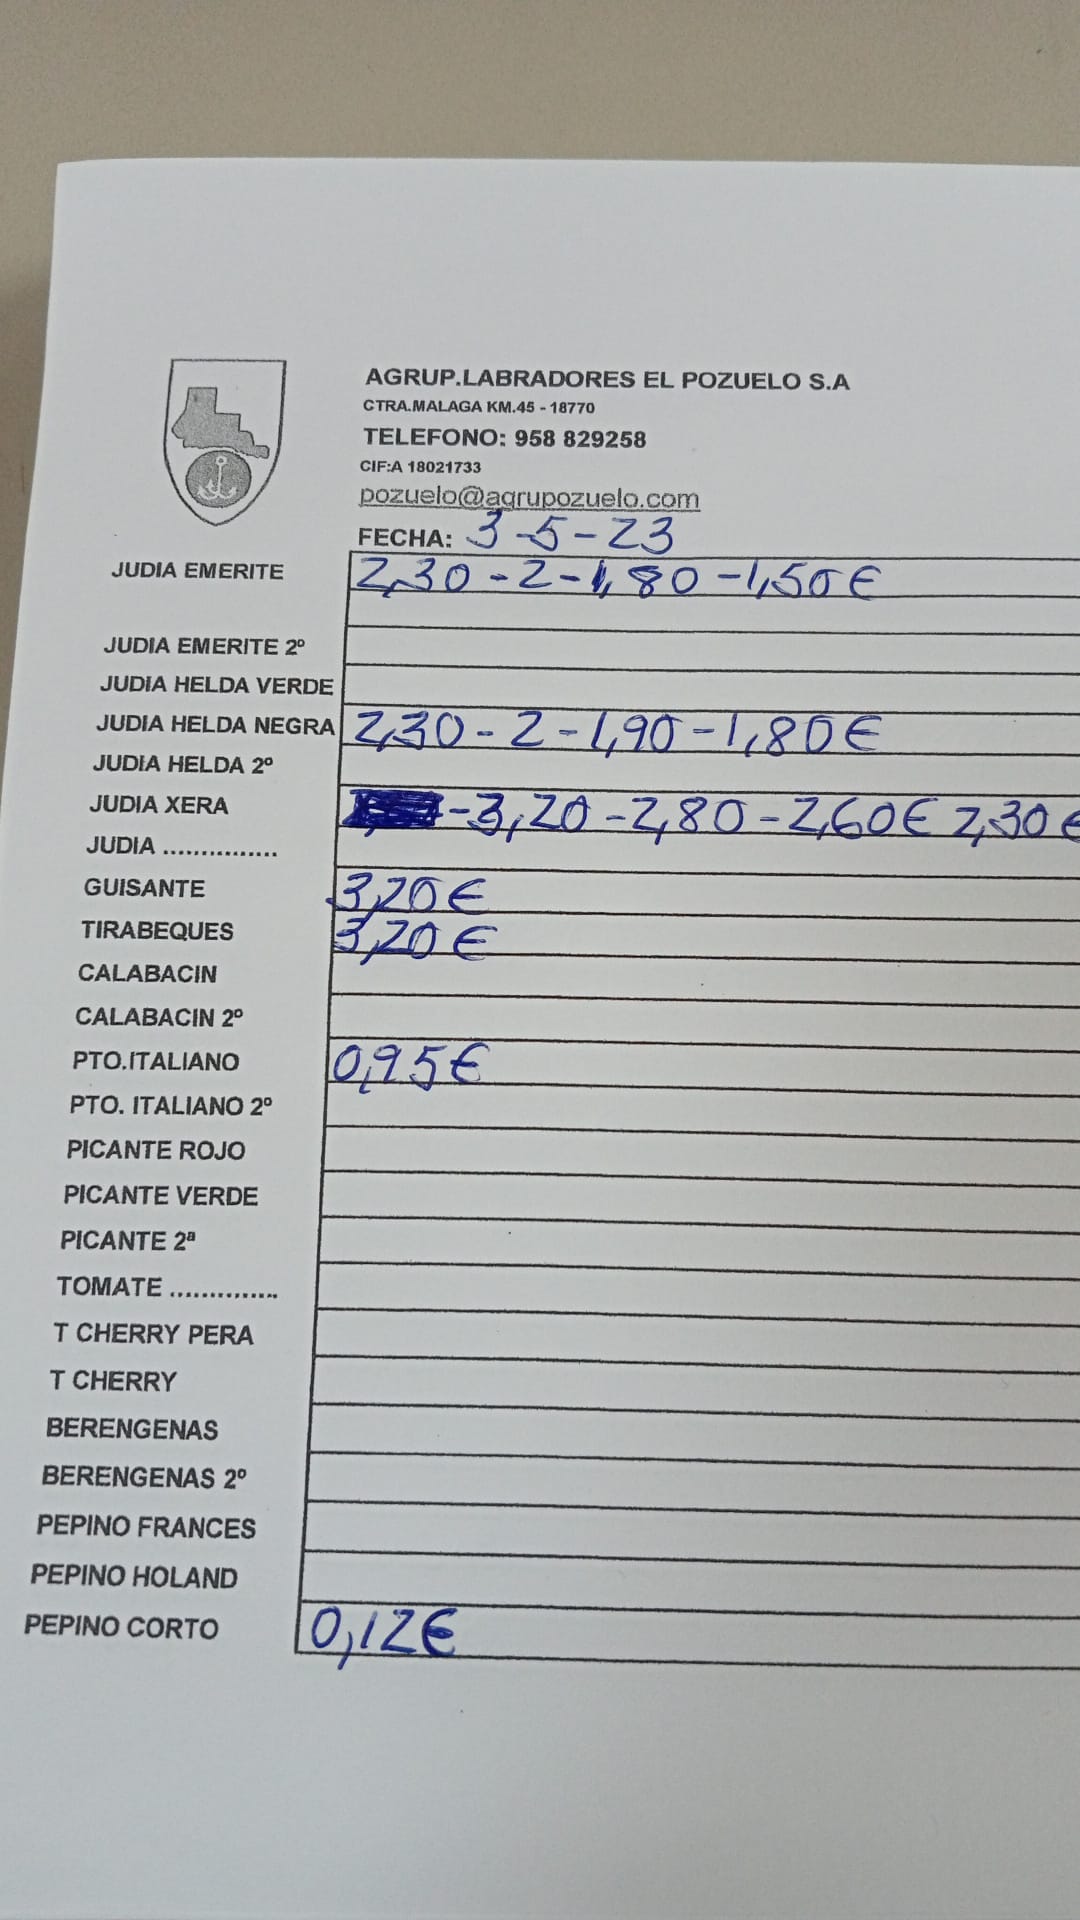 AGRUP.LABRADORES EL POZUELO S.A
CTRA.MALAGA KM.45 - 18770
TELEFONO: 958 829258
CIF:A 18021733
pozuelo@agrupozuelo.com
FECHA: 3-5-23
JUDIA EMERITE 2,30-2-1,80-1,50€
JUDIA EMERITE 2º
JUDIA HELDA VERDE
JUDIA HELDA NEGRA 2,30-2-1,90-1,80€
JUDIA HELDA 2º
JUDIA XERA -3,20-2,80-2,60€ 2,30€
JUDIA ...............
GUISANTE 3,20€
TIRABEQUES 3,20€
CALABACIN
CALABACIN 2º
PTO.ITALIANO 0,95€
PTO. ITALIANO 2º
PICANTE ROJO
PICANTE VERDE
PICANTE 2ª
TOMATE ..............
T CHERRY PERA
T CHERRY
BERENGENAS
BERENGENAS 2º
PEPINO FRANCES
PEPINO HOLAND
PEPINO CORTO 0,12€